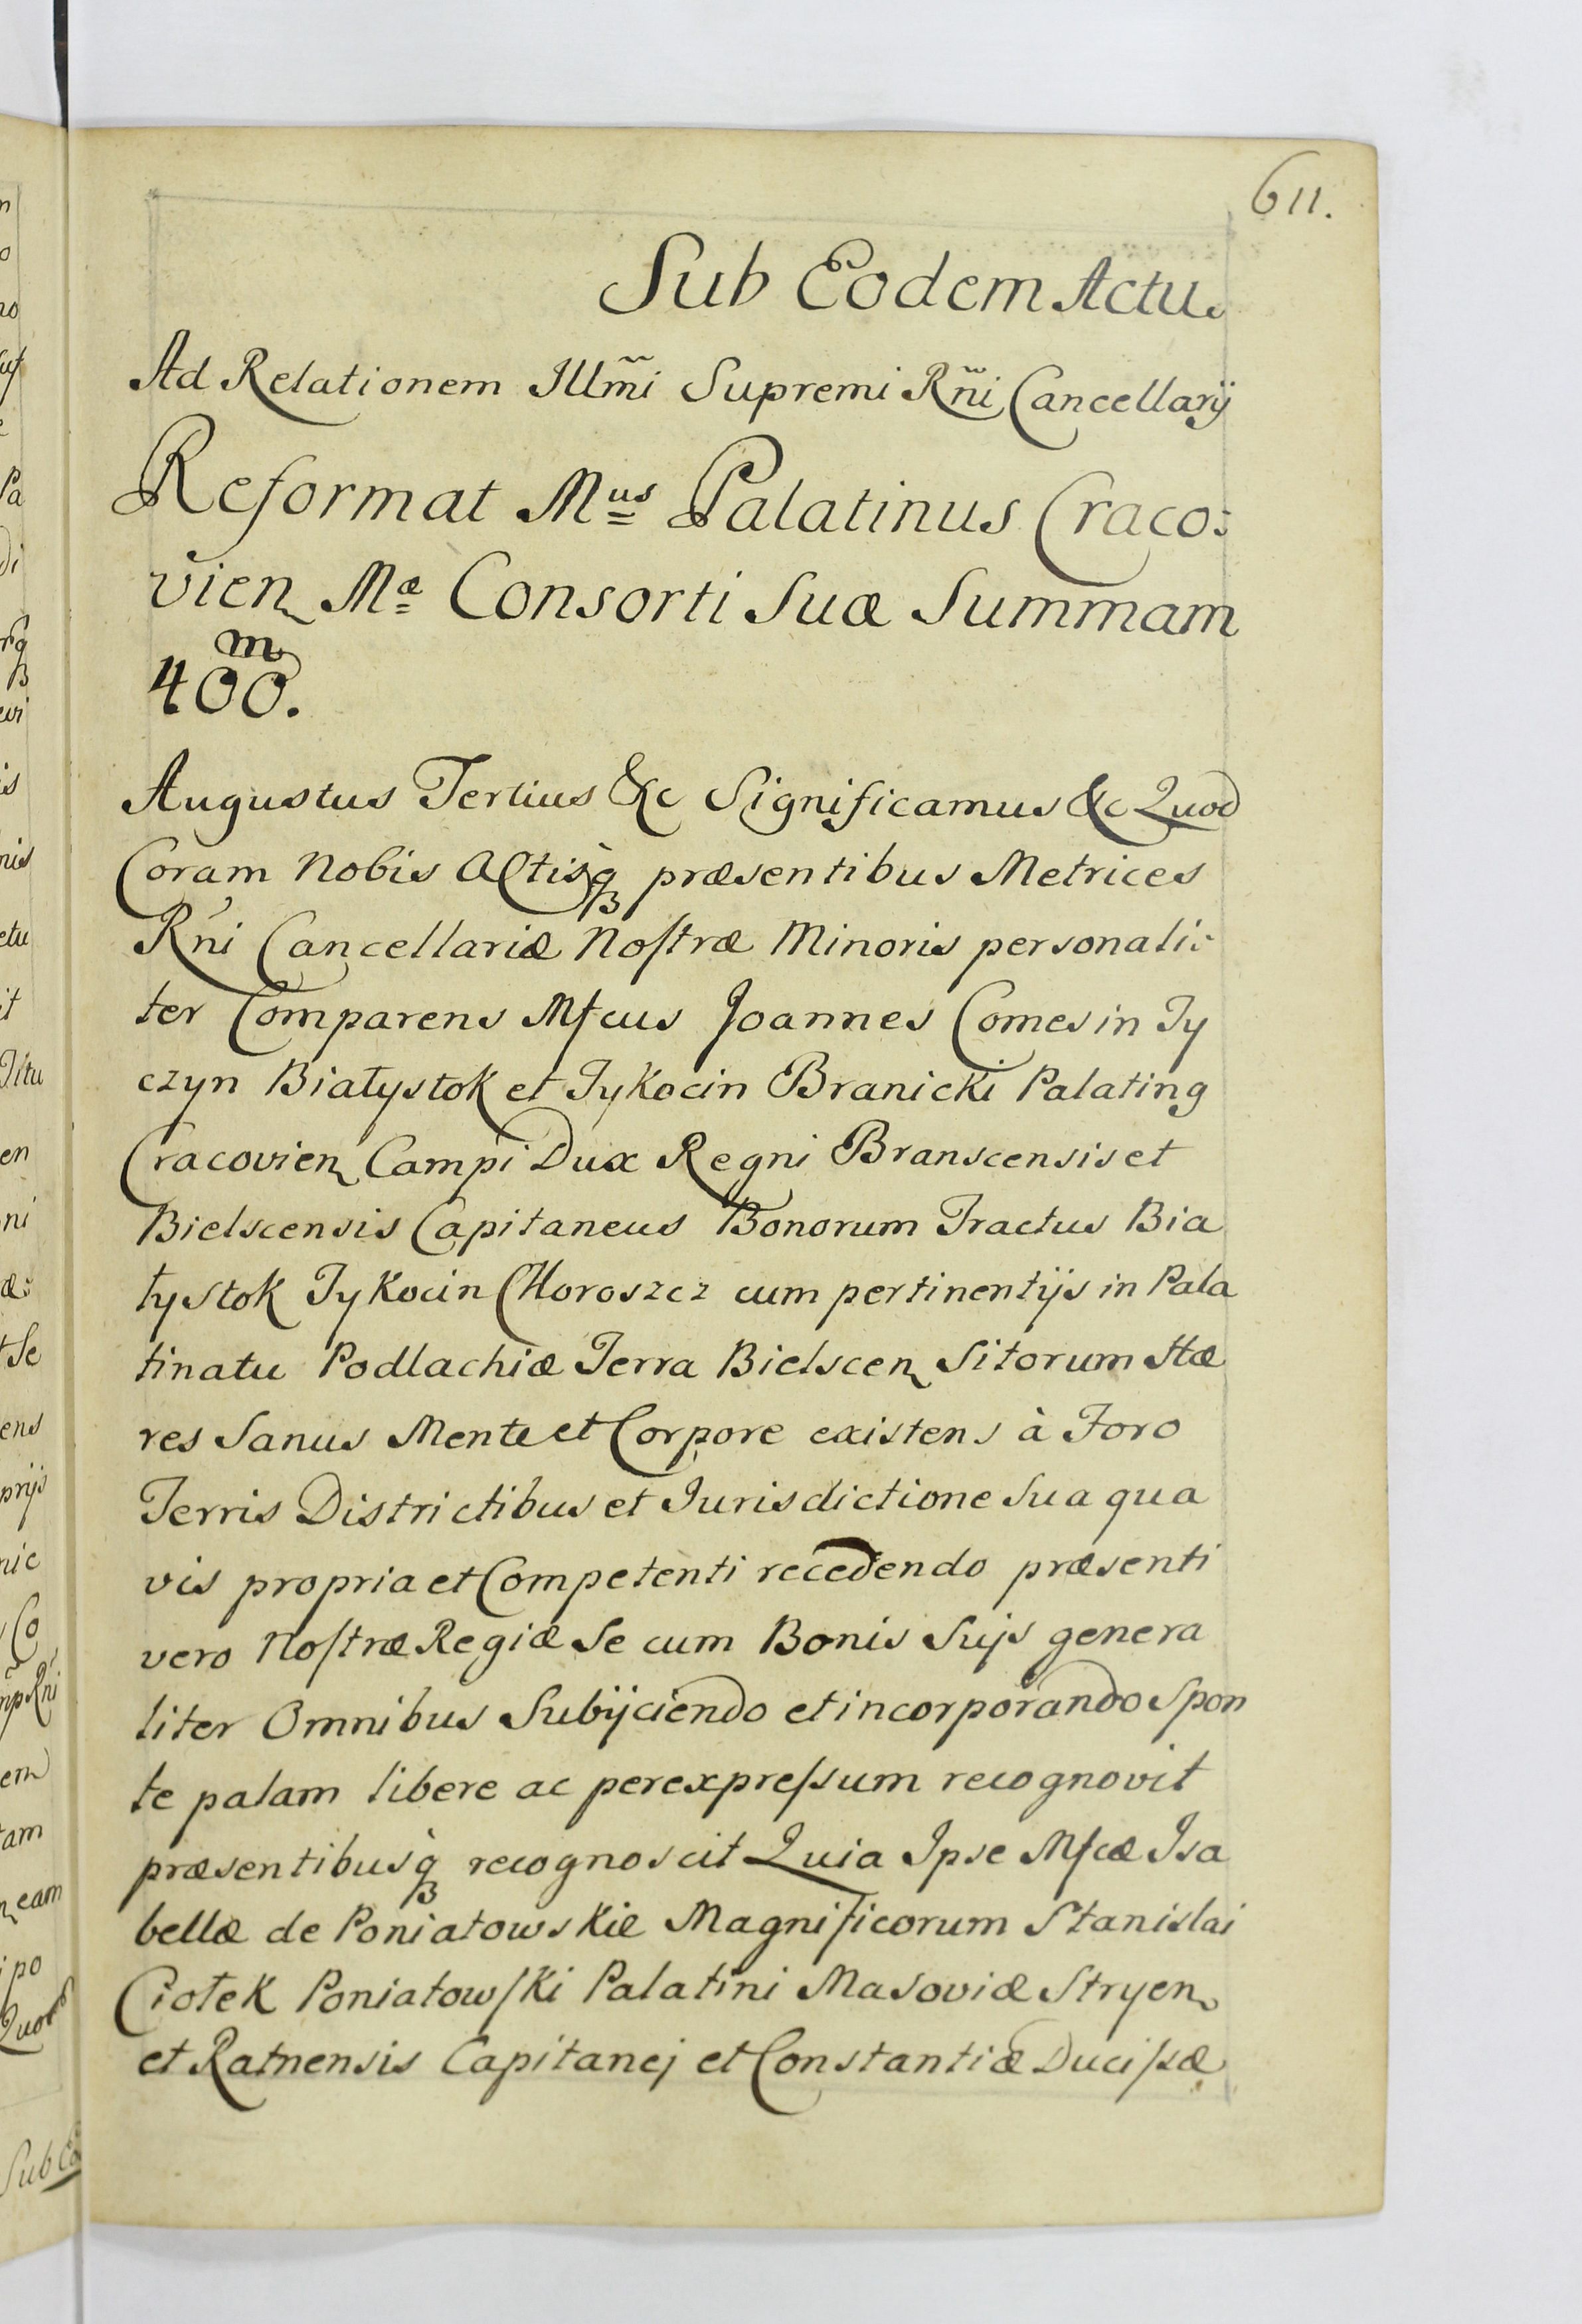 611.
Sub Eodem Actu.
Ad Relationem Illm̃i Supremi Rñi Cancellarij
Reformat Mus Palatinus Craco:
vien Mæ Consorti Suæ Summam
m
400.
Augustus Tertius &c Significamus &c Quod
Coram Nobis Actisq præsentibus Metrices
Rńi Cancellariæ Noſtræ Minoris personali:
ter Comparens Mfcus Joannes Comes in Ty
czyn Białystok et Tykocin Branicki Palatinꝯ
Cracovien Campi Dux Regni Branscensis et
Bielscensis Capitaneus Bonorum Tractus Bia
łystok Tykocin Choroszcz cum pertinentijs in Pala
tinatu Podlachiæ Terra Bielscen Sitorum Hæ
res Sanus Mente et Corpore existens à Foro
Terris Districtibus et Jurisdictione Sua qua
vis propria et Competenti recedendo præsenti
vero Noſtræ Regiæ Se cum Bonis Suis genera
liter Omnibus Subijciendo et incorporando Spon
te palam libere ac perexpreſsum recognovit
præsentibusq recognoscit Quia Ipse Mfcæ Isa
bellæ de Poniatowskie Magnificorum Stanislai
Ciołek Poniatowſki Palatini Masoviæ Stryen
et Ratnensis Capitanej et Constantiæ Duciſsæ